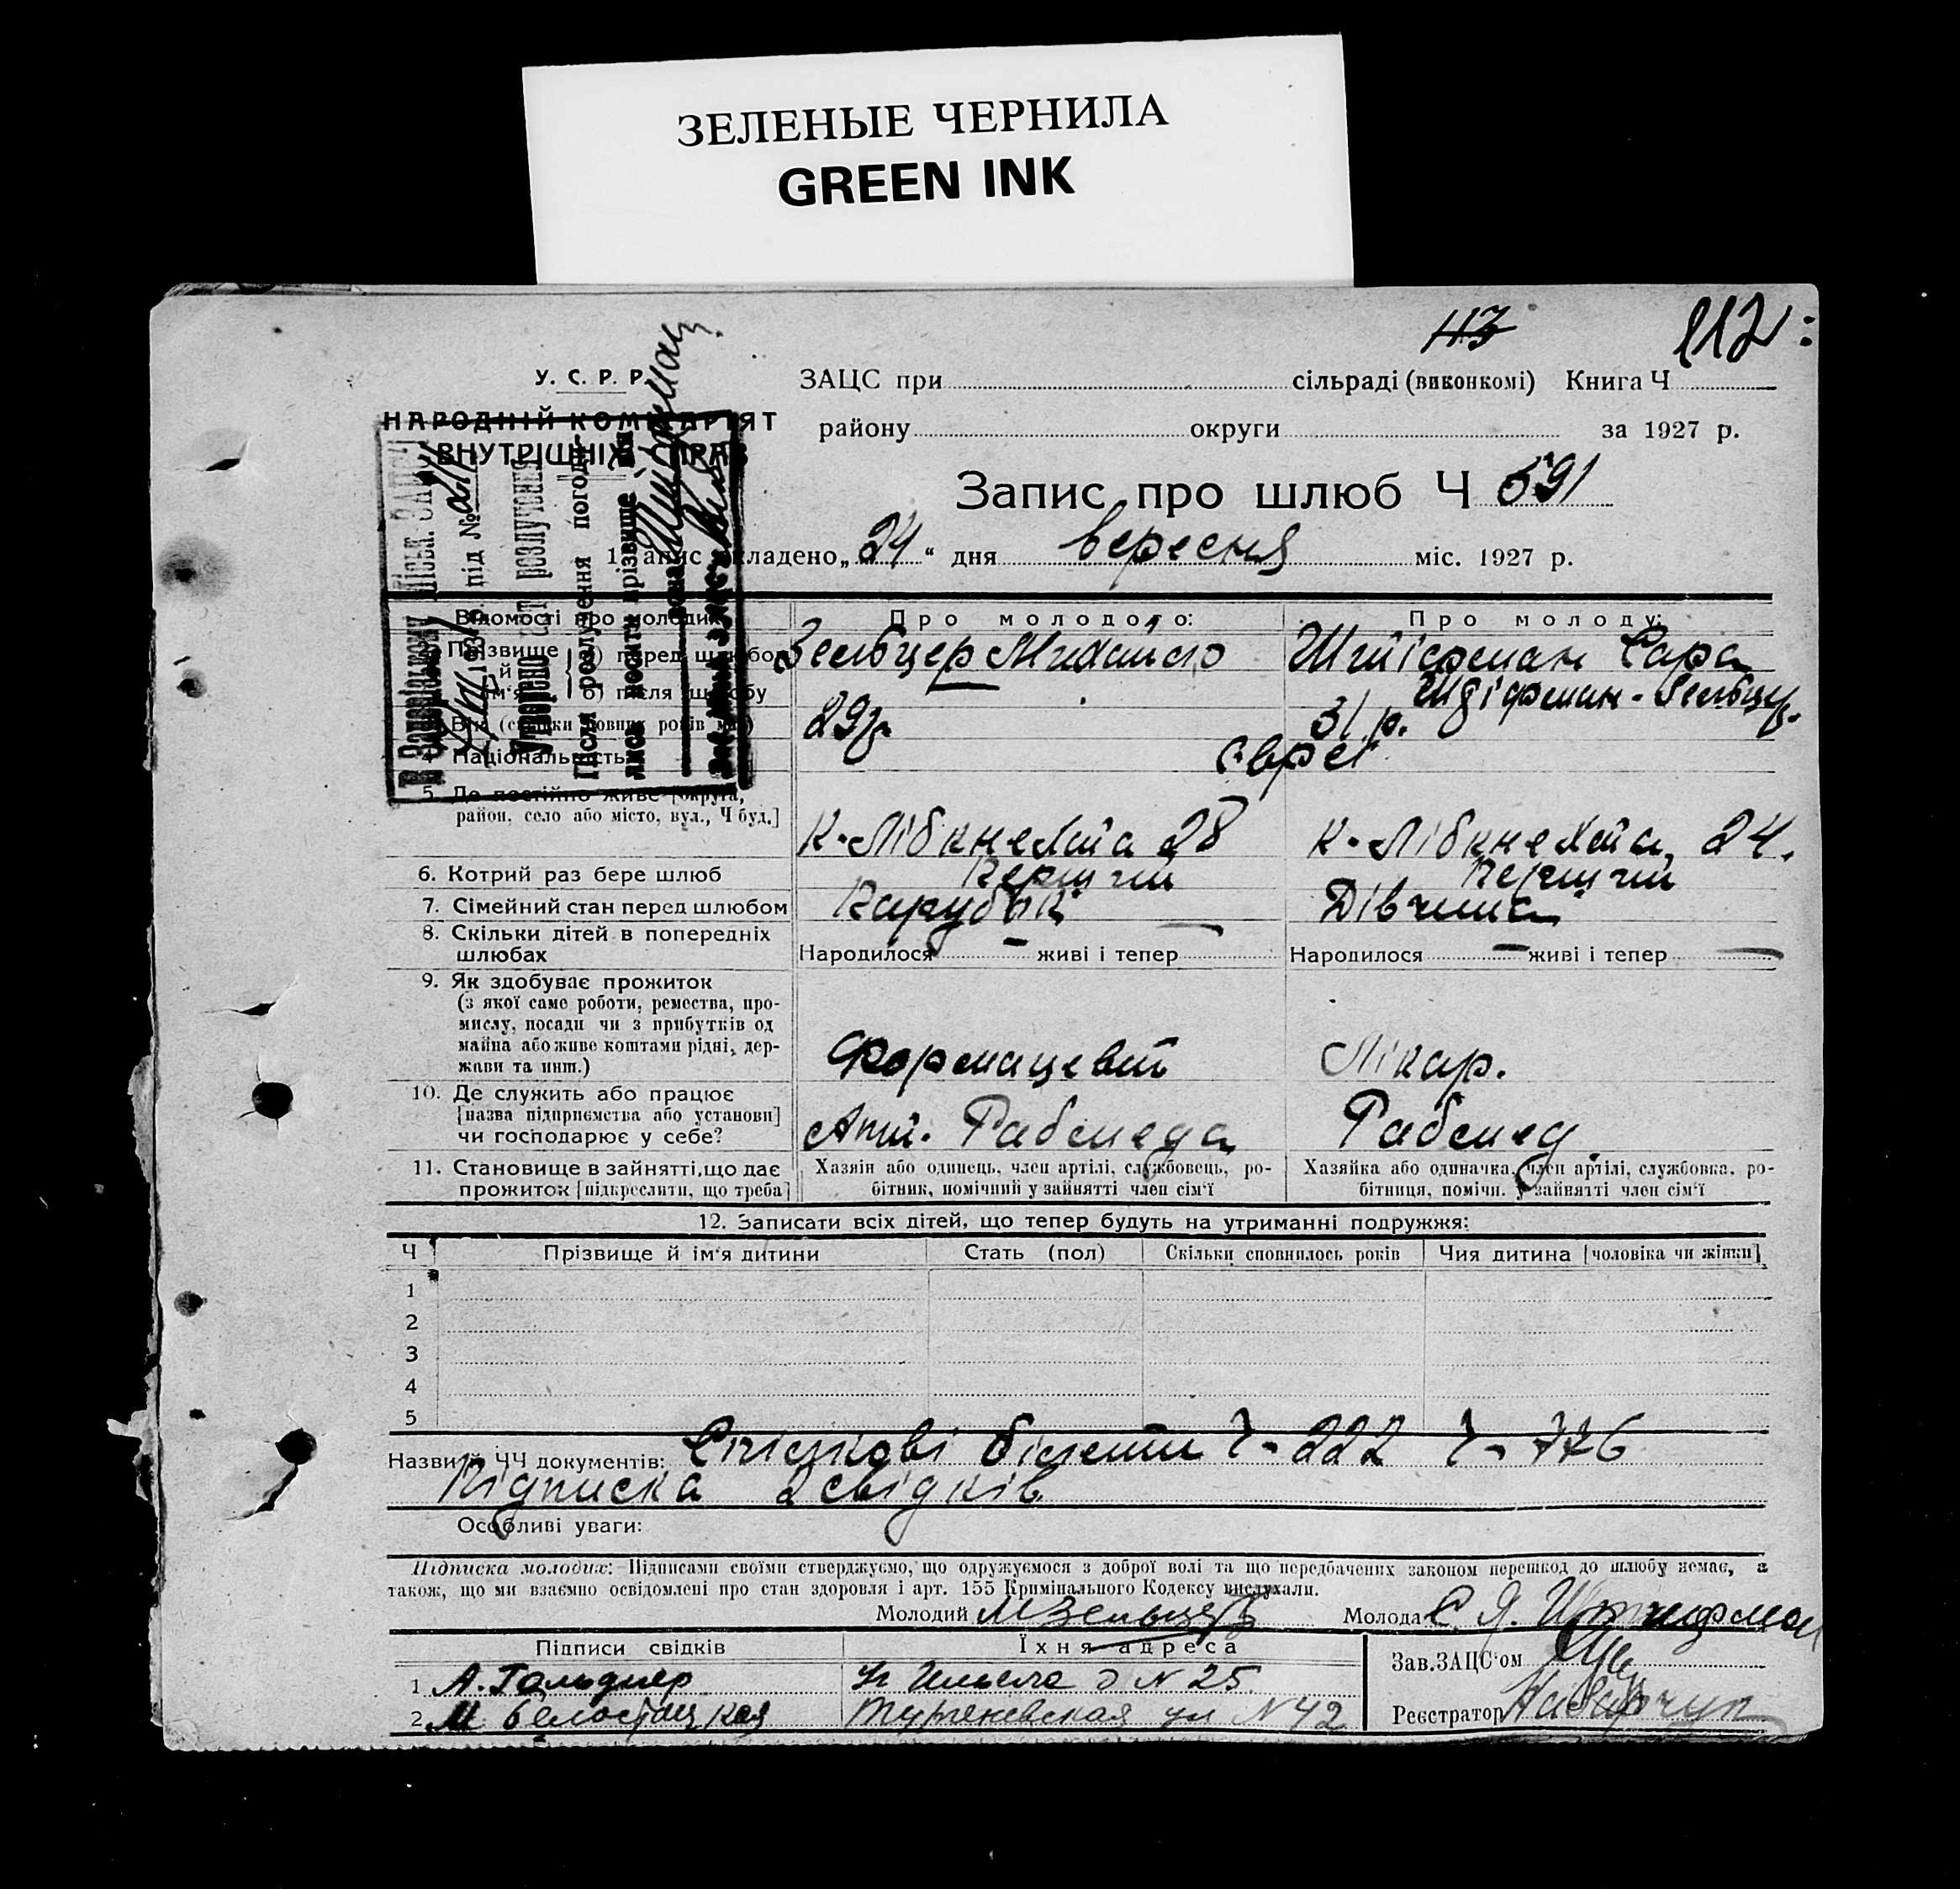 ЗЕЛЕНЫЕ ЧЕРНИЛА
GREEN INK
113 112
У. С. Р. Р.
НАРОДНІЙ КОМІСАРІЯТ
ВНУТРІШНІХ СПРАВ
ЗАЦС при сільраді (виконкомі) Книга Ч
району округи за 1927 р.
Запис про шлюб Ч 591
1. Запис складено „24“ дня вересня міс. 1927 р.
В Запорізькому Міськ. ЗАЦСі
під №
Утворено акт розлучення
Після розлучення погоди-
лись носити прізвище він
вона
Відомості про молодих Про молодого: Про молоду:
Прізвище й ім'я а) перед шлюбом Зельбцер Михайло Штіфман Сара
б) після шлюбу Штіфман-Зельбцер
3. Вік (скільки повних років має) 29 р. 31 р.
4. Національність євреї
5. Де постійно живе [округа,
район, село або місто, вул., Ч буд.] К-Лібкнехта 28 К-Лібкнехта, 24.
6. Котрий раз бере шлюб Перший Перший
7. Сімейний стан перед шлюбом Парубок Дівчина
8. Скільки дітей в попередніх
шлюбах Народилося – живі і тепер – Народилося – живі і тепер –
9. Як здобуває прожиток
(з якої саме роботи, ремества, про-
мислу, посади чи з прибутків од
майна або живе коштами рідні, дер-
жави та инш.) Формацевт Лікар.
10. Де служить або працює
[назва підприємства або установи]
чи господарює у себе? Апт. Рабмеда Рабмед.
11. Становище в зайнятті, що дає
прожиток [підкреслити, що треба]
Хазяїн або одинець, член артілі, службовець, ро-
бітник, помічний у зайнятті член сім'ї
Хазяйка або одиначка, член артілі, службовка, ро-
бітниця, помічн. у зайнятті член сім'ї
12. Записати всіх дітей, що тепер будуть на утриманні подружжя:
Ч Прізвище й ім'я дитини Стать (пол) Скільки сповнилось років Чия дитина [чоловіка чи жінки]
1
2
3
4
5
Назви й ЧЧ документів: білети Ч-222 Ч-776
Підписка 2 свідків
Особливі уваги:
Підписка молодих: Підписами своїми стверджуємо, що одружуємося з доброї волі та що передбачених законом перешкод до шлюбу немає, а
також, що ми взаємно освідомлені про стан здоровля і арт. 155 Кримінального Кодексу вислухали.
Молодий М Зельцер Молода С. Я. Штифман
Підписи свідків Їхня адреса Зав. ЗАЦС'ом
1 А. Гольднер д N 25
2 М Белостоцкая Тургеневская ул N 42 Реєстратор